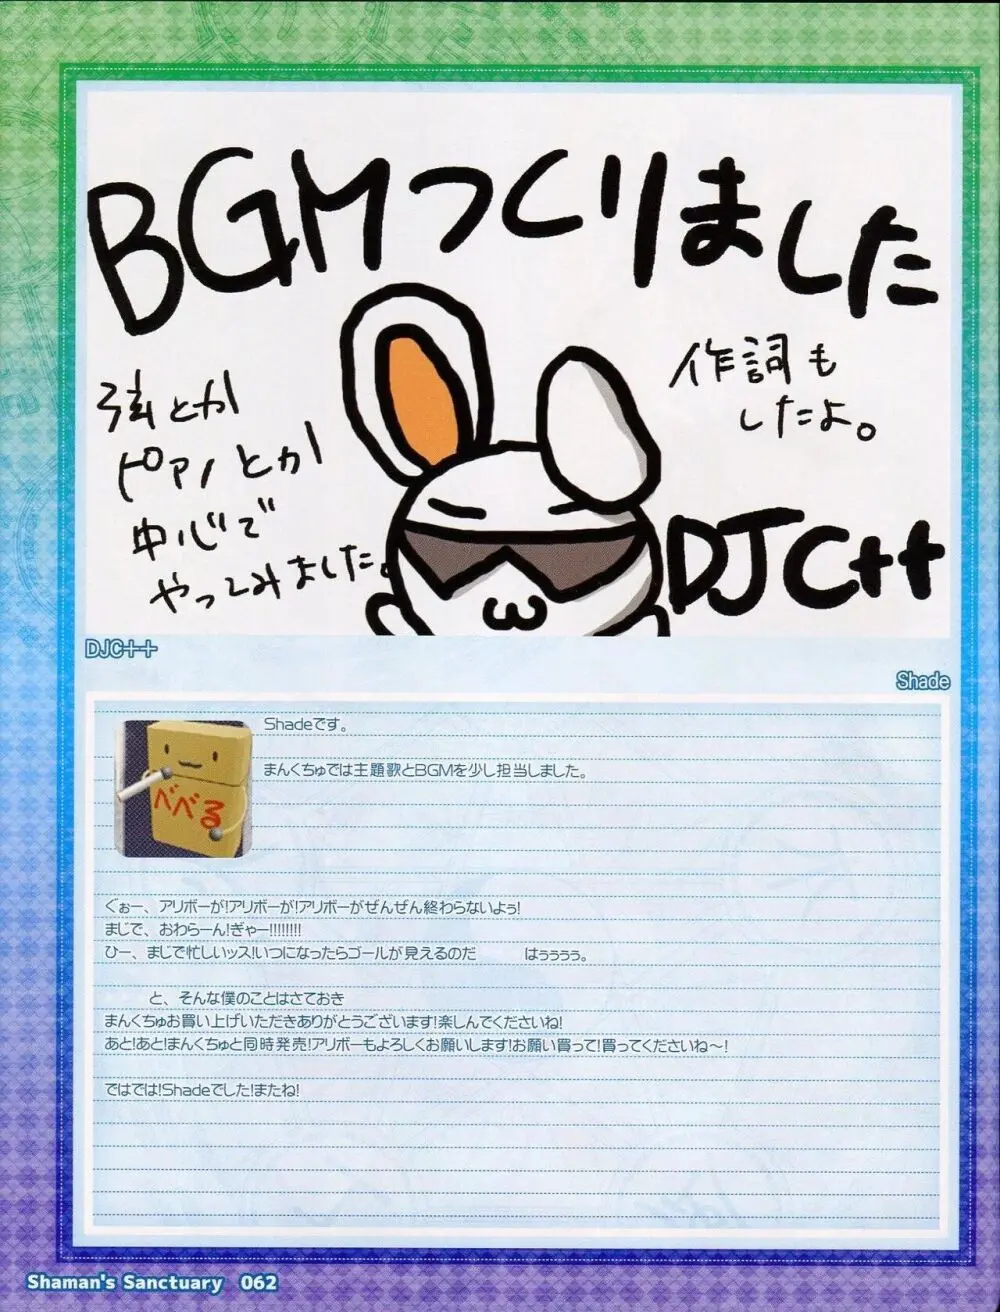 BGMつくりました
弦とか
ピアノとか
中心で
やってみました。
作詞も
したよ。
DJC++
DJC++
Shade
べべる
Shadeです。
まんくちゅでは主題歌とBGMを少し担当しました。
ぐぉー、アリボーが!アリボーが!アリボーがぜんぜん終わらないよぅ!
まじで、おわらーん!ぎゃー!!!!!!!!
ひー、まじで忙しいッス!いつになったらゴールが見えるのだ　　　はぅぅぅぅ。
と、そんな僕のことはさておき
まんくちゅお買い上げいただきありがとうございます!楽しんでくださいね!
あと!あと!まんくちゅと同時発売!アリボーもよろしくお願いします!お願い買って!買ってくださいね〜!
ではでは!Shadeでした!またね!
Shaman's Sanctuary 062